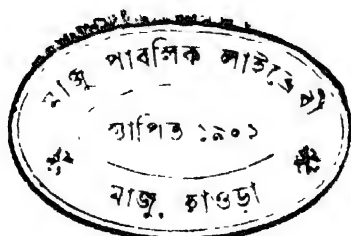 মাজু পাবলিক লাইব্রেরী
স্থাপিত ১৯০১
মাজু, হাওড়া